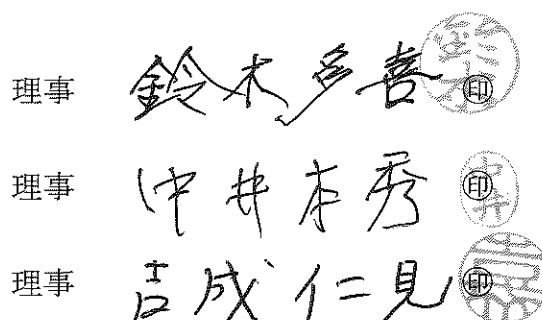 理事 鈴木多喜 ㊞
理事 仲井本秀 ㊞
理事 吉成仁見 ㊞